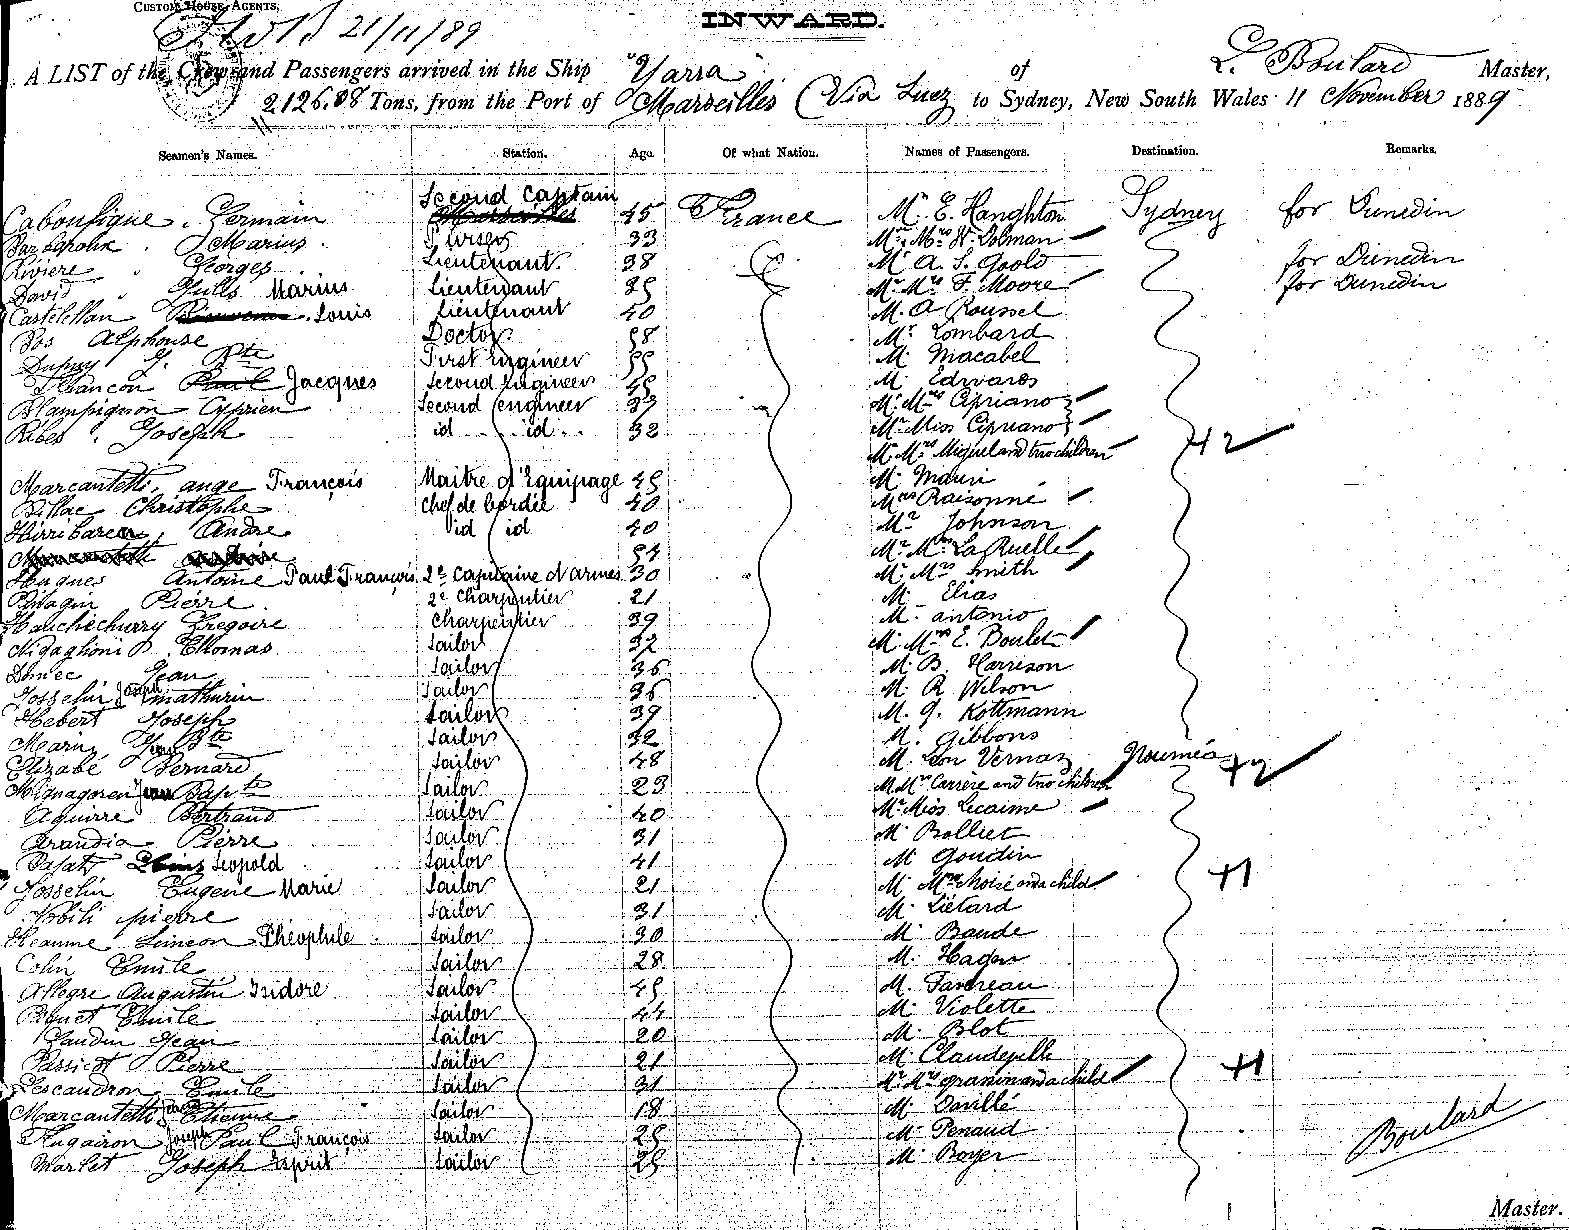 CUSTOM HOUSE AGENTS,
21/11/89
INWARD.
A LIST of the Crew and Passengers arrived in the Ship "Yarra" of L. Boulard Master,
2126.88 Tons, from the Port of Marseilles (Via Suez to Sydney, New South Wales 11 November 1889
Seamen's Names. Station. Age. Of what Nation. Names of Passengers. Destination. Remarks.
Second Captain
Germain 45 France Mr E. Hanghton Sydney for Dunedin
Marius Purser 33 Mr Mrs W. Colman
Riviere Georges Lieutenant 38 Mr A. S. Goold for Dunedin
David Jules Marius Lieutenant 35 Mr Mrs F. Moore for Dunedin
Castelellan Louis Lieutenant 40 M. A Roussel
Alphonse Doctor 58 Mr Lombard
Dupuy J. Bte First Engineer 55 M. Macabel
Jacques Second Engineer 45 M Edwards
Blampignon Cyprien Second engineer 37 M. Mrs Cipriano
Ribes Joseph id id 32 Mr Miss Cipriano
M. Mrs Miquel and two children +2
Marcantetti ange François Maitre d'Equipage 45 M. Marin
Billac Christophe Chef de bordée 40 Mrs Raisonné
Hirribaren André id id 40 Mr Johnson
54 Mr Mrs La Ruelle
Hugues Antoine Paul François 2e Capitaine d'armes 30 Mr Mrs Smith
Pierre 2e Charpentier 21 M Elias
Gregoire Charpentier 39 M. antonio
Nidaglioni Thomas Sailor 32 M. Mrs E. Boulet
Jean Sailor 36 M. B. Harrison
Josselin Joseph mathurin Sailor 36 M. R. Wilson
Hebert Joseph Sailor 39 M. J. Kottmann
Marin Jean Bte Sailor 32 M. Gibbons
Elizabé Bernard Sailor 48 M. Leon Vernaz Nouméa
Jean Bapte Sailor 23 M Mrs Carrère and two children +2
Aguirre Bertrand Sailor 40 Mr Miss Lecaime
Arandia Pierre Sailor 31 M. Bolliet
Leopold Sailor 41 M Goudin
Josselin Eugene Marie Sailor 21 M Mrs Noisé and a child +1
Nobili pierre Sailor 31 M. Lietard
Simeon Théophile Sailor 30 M. Baude
Colin Emile Sailor 28 M. Hagen
Allegre Augustin Isidore Sailor 45 M. Favreau
Emile Sailor 44 M Violette
Jean Sailor 20 M. Blot
Passicot Pierre Sailor 21 M Claudepelle
Lescaudron Emile Sailor 31 Mr Mrs granin and a child +1
Marcantetti Etienne Sailor 18 M. Davillé
Joseph Paul François Sailor 25 M Penaud
Marlet Joseph Esprit Sailor 25 M Boyer
Boulard
Master.